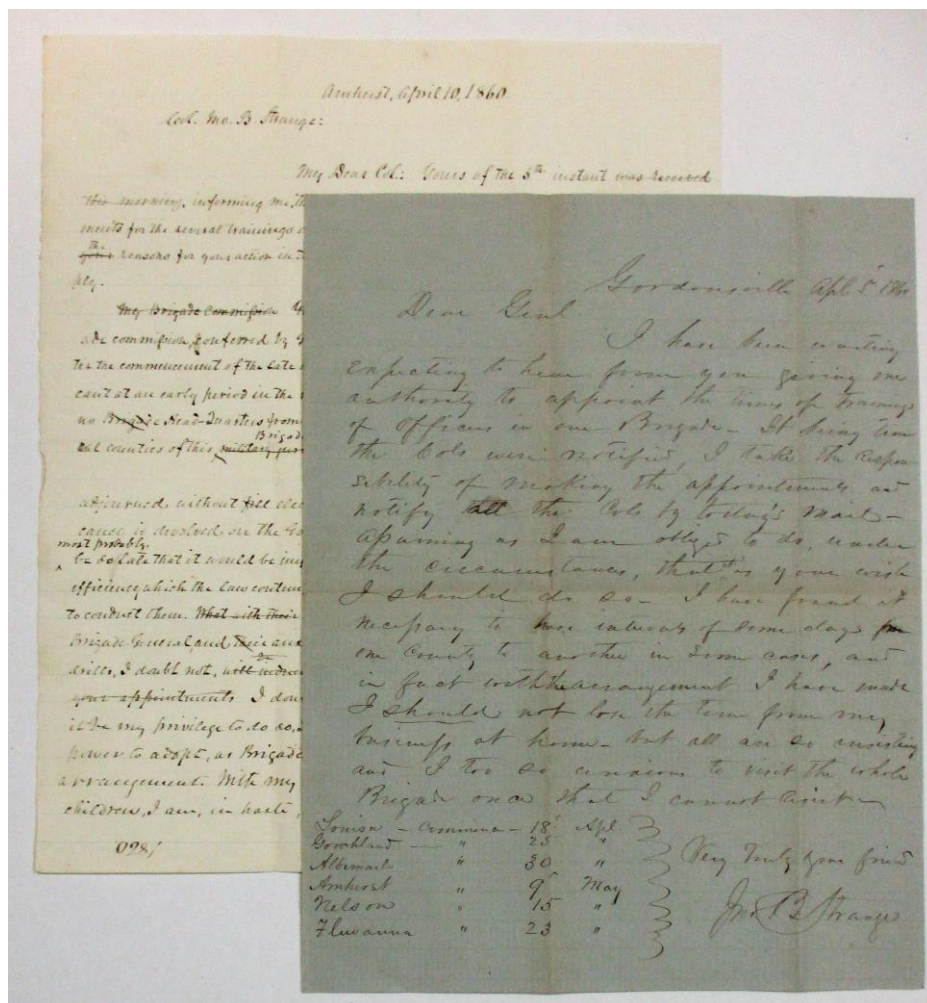 Amherst, April 10, 1860.
Col. Jno. B. Strange:
My Dear Col: Yours of the 5th instant was received
this morning, informing me
ments for the several trainings
the
your reasons for your action in
ply.
My Brigade Commission
ade commission, conferred by
to the commencement of the late
cant at an early period in the
no Brigade Head-Quarters from
Brigade
al counties of this military
adjourned, without elec
cancy is devolved on the Go
most probably
be so late that it would be im
efficiency which the law contem
to conduct them. What with their
Brigade General, and their
drills, I doubt not, will
your appointments I dou
it be my privilege to do so,
power to adopt, as Brigade
arrangement. With my
children, I am, in haste,
Gordonsville Apl 5th 1860
Dear Genl
I have been waiting
expecting to hear from you giving me
authority to appoint the times of trainings
of Officers in our Brigade - It being time
the Cols were notified, I take the respon
sibility of making the appointments and
notify all the Cols by today's mail -
assuming as I am obliged to do, under
the circumstances, that is your wish
I should do so - I have found it
necessary to have intervals of some days from
one County to another in some cases, and
in fact with the arrangement I have made
I should not lose the time from my
business at home - but all are so insisting
and I too so anxious to visit the whole
Brigade once that I cannot resist -
Louisa - commence - 18 Apl.
Goochland - " 23 "
Albemarle " 30 "
Amherst " 9 May
Nelson " 15 "
Fluvanna " 23 "
Very truly your friend
Jno B Strange